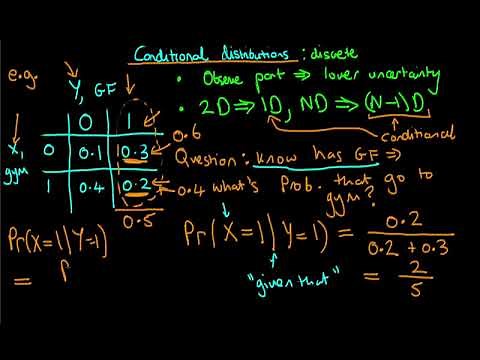 Conditional distributions : discrete
e.g.
Y, GF
• Observe part ⇒ lower uncertainty
• 2D ⇒ 1D, ND ⇒ (N-1)D
conditional
0 1
X, gym
0 0.1 0.3
0.6
1 0.4 0.2
0.4
0.5
Question: know has GF ⇒
what's Prob. that go to
gym?
Pr(X=1|Y=1) = 0.2 / 0.2 + 0.3
"given that"
= 2 / 5
Pr(X=1|Y=1)
=